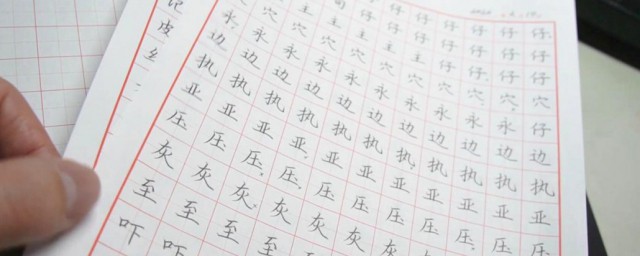 记
皮
丝
句 仔 仔 仔 仔 仔 仔 仔
主 主 主 主 主 仔 仔 仔 仔
穴 穴 穴 穴 穴 穴 穴 穴 穴 穴
永 永 永 永 永 永 永 永 永 永 仔
边 边 边 边 边 边 边 边 边 边 边
执 执 执 执 执 执 执 执 执 执 执
亚 亚 亚 亚 亚 亚 亚 亚 亚 亚 亚
压 压 压 压 压 压 压 压 压 压 压
灰 灰 灰 灰 灰 灰 灰 灰
至 至 至 至
吓 吓